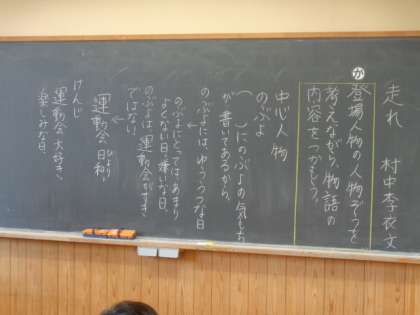 走れ　村中李衣文
か
登場人物の人物ぞうを
考えながら、物語の
内容をつかもう。
中心人物
のぶよ
(　)にのぶよの気もち
が書いてあるから。
のぶよには、ゆううつな日
のぶよにとっては、あまり
よくない日、嫌いな日。
のぶよは、運動会がすき
ではない。
運動会日和
びより
けんじ
運動会大好き。
楽しみな日。